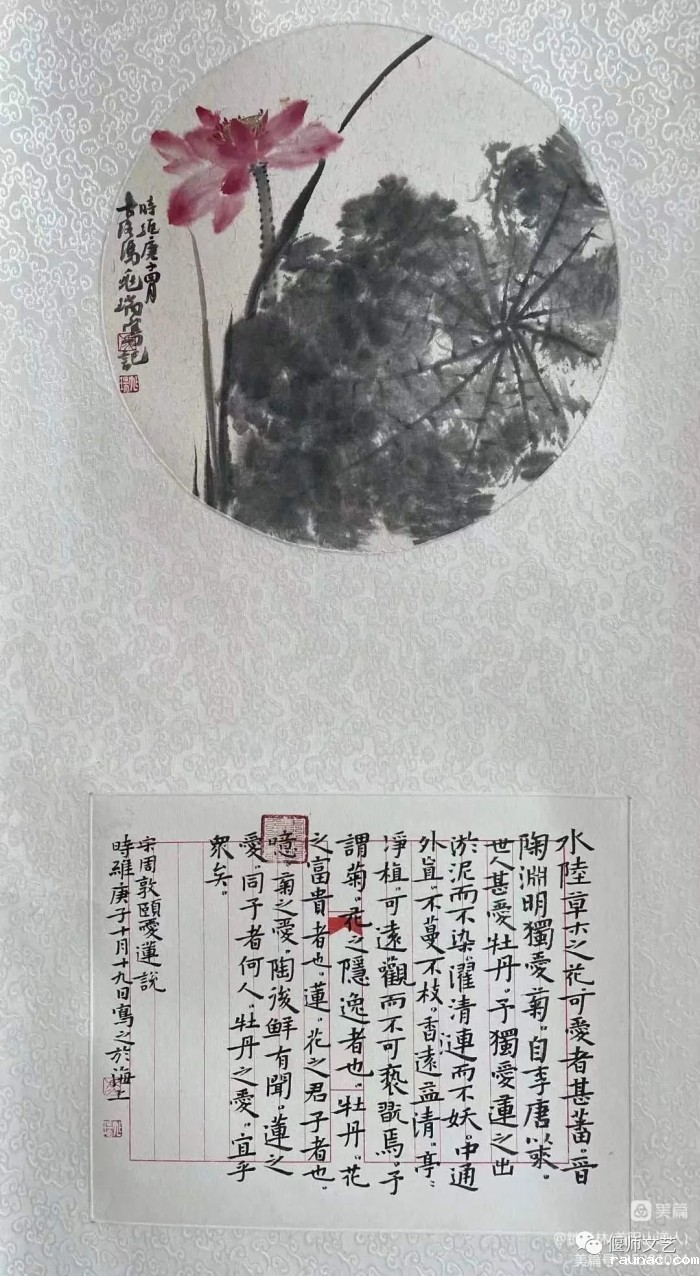 時維庚子四月
寫記
水陸草木之花。可愛者甚蕃。晉
陶淵明獨愛菊。自李唐以來。
世人甚愛牡丹。予獨愛蓮之出
淤泥而不染。濯清漣而不妖。中通
外直。不蔓不枝。香遠益清。亭〻
淨植。可遠觀而不可褻翫焉。予
謂菊。花之隱逸者也。牡丹。花
之富貴者也。蓮。花之君子者也。
噫。菊之愛。陶後鮮有聞。蓮之
愛。同予者何人。牡丹之愛。宜乎
衆矣。
宋周敦頤愛蓮說
時維庚子十月十九日寫之於海上
美篇
偃师文艺
美篇号
raunac.com